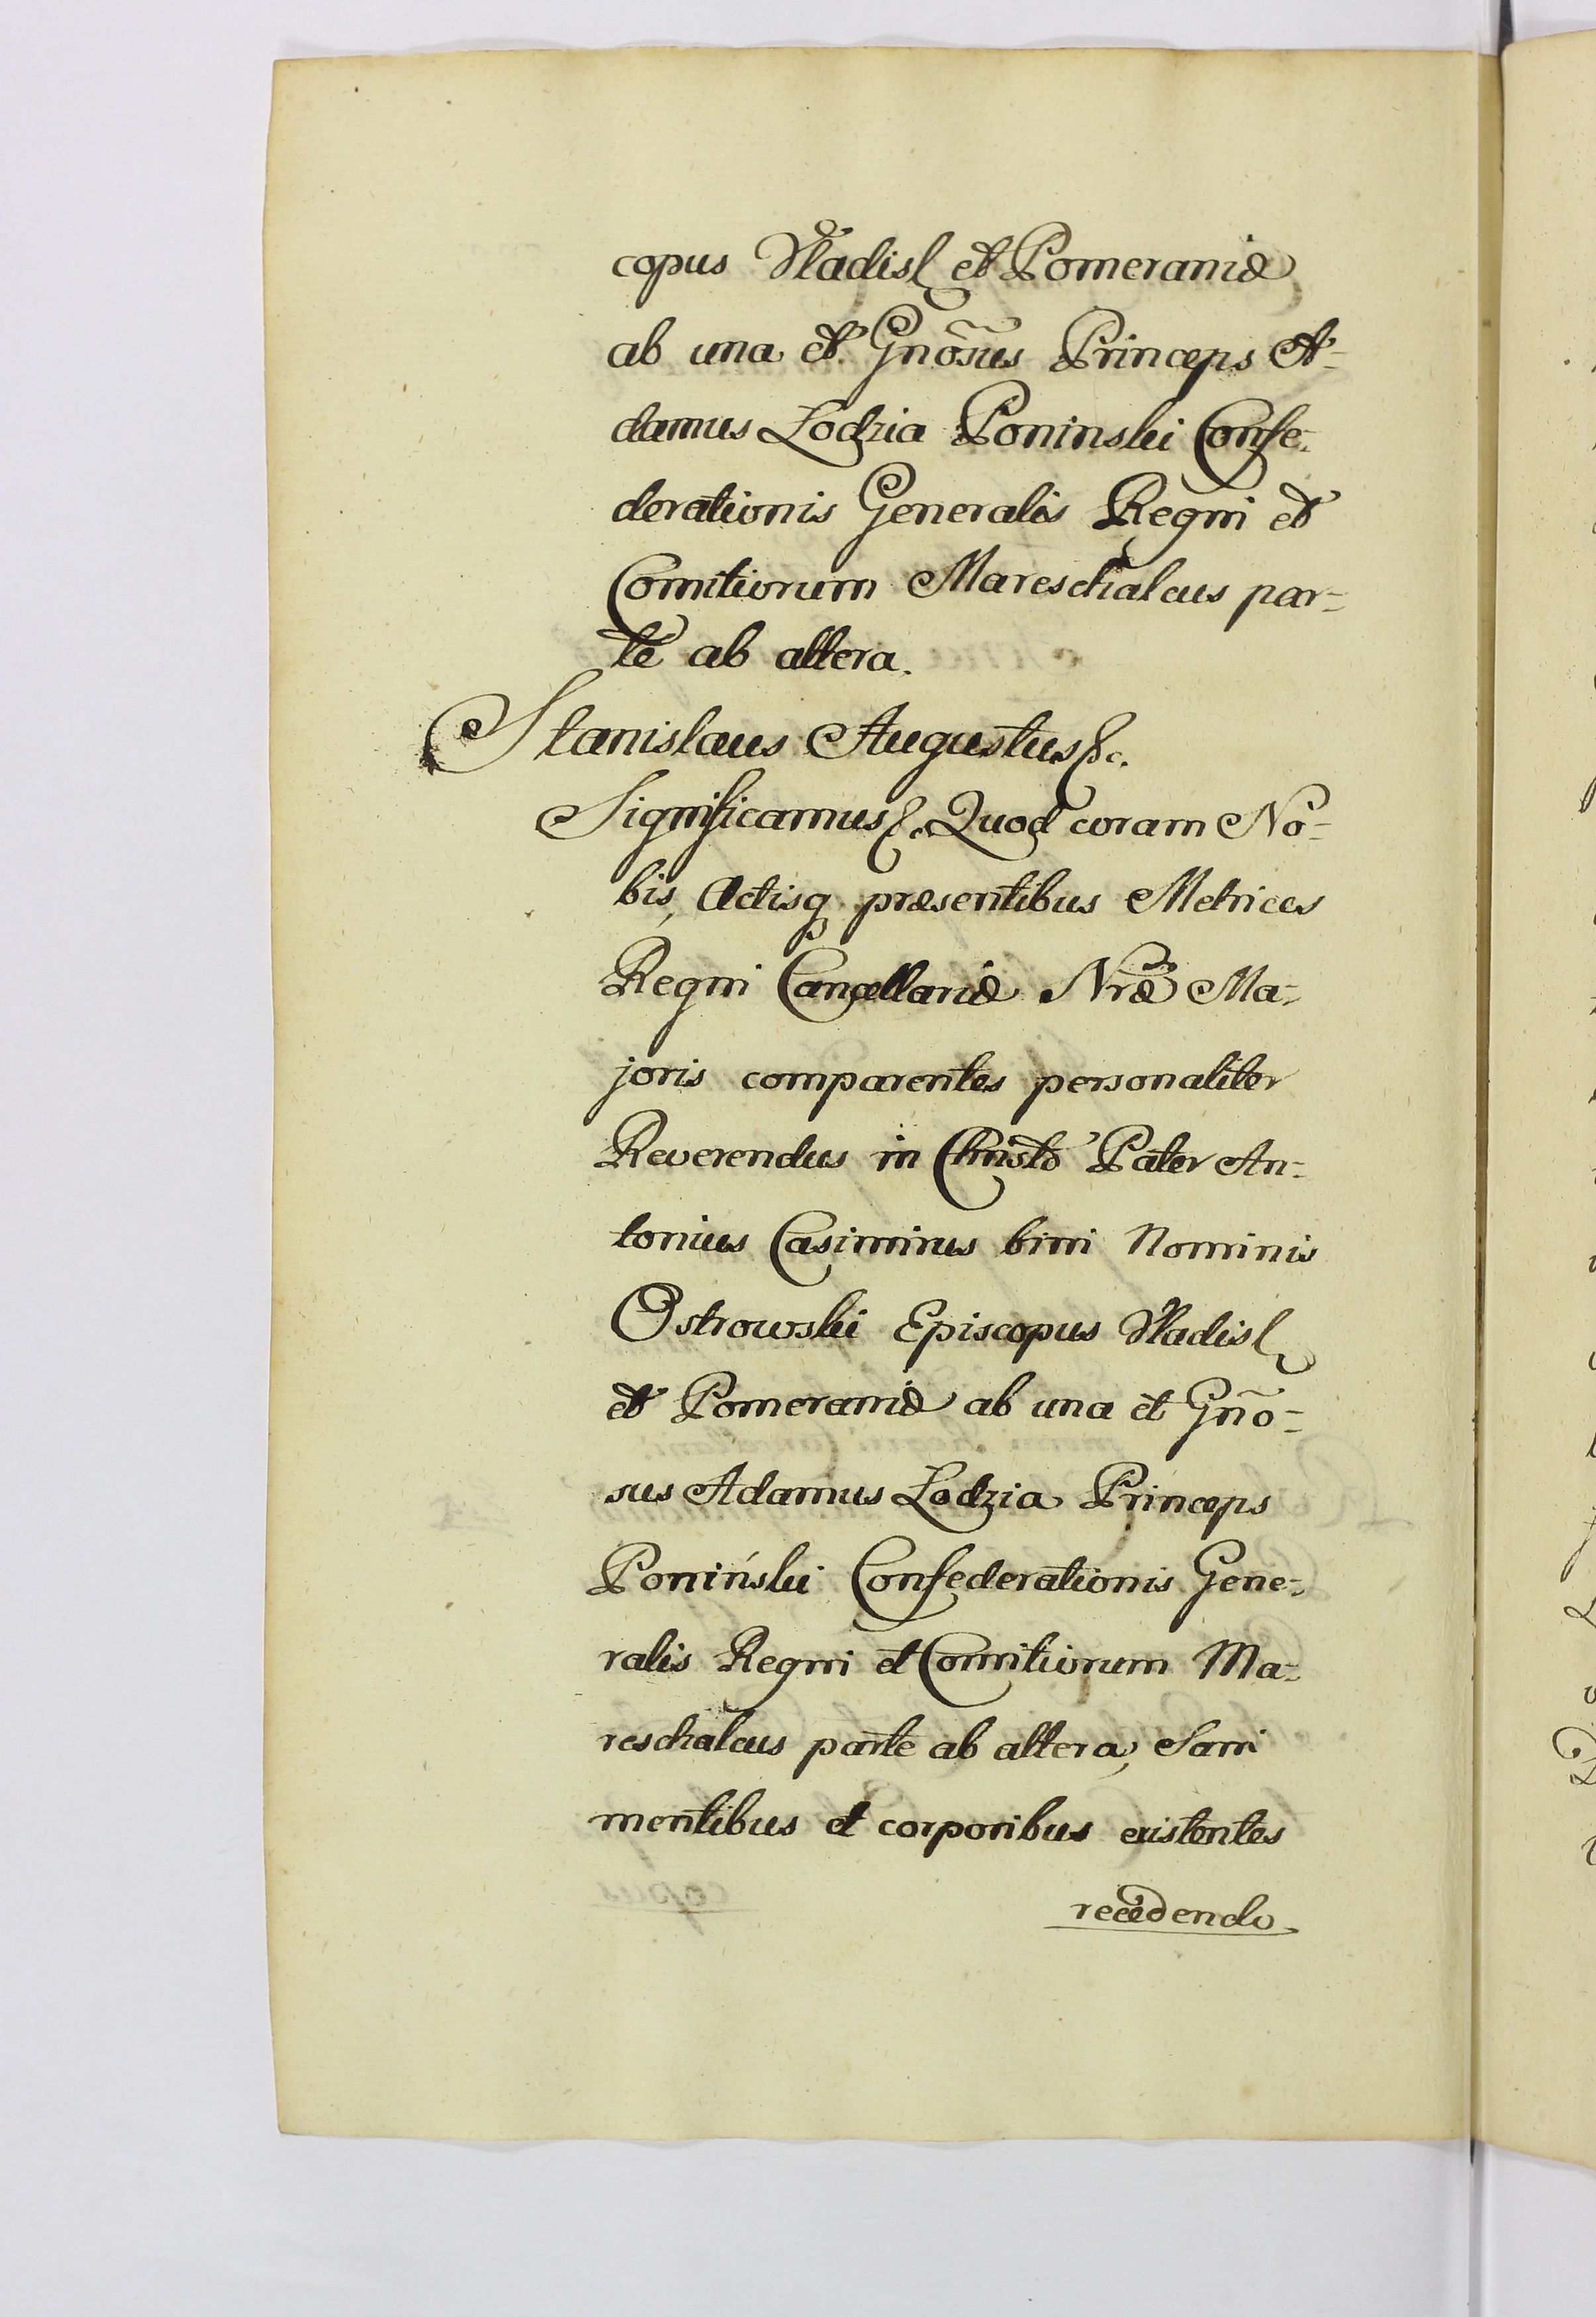 copus Wladisl et Pomeraniæ
ab una et Gnõsus Princeps A-
damus Lodzia Poninski Confe-
derationis Generalis Regni et
Comitiorum Mareschalcus par-
te ab altera.
Stanislaus Augustus &c.
Significamus &. Quod coram No-
bis, Actisq præsentibus Metrices
Regni Cancellariæ Nræ Ma-
joris comparentes personaliter
Reverendus in Christo Pater An-
tonius Casimirus bini Nominis
Ostrowski Episcopus Wladisl
et Pomeraniæ ab una et Gño-
sus Adamus Lodzia Princeps
Poniński Confederationis Gene-
ralis Regni et Comitiorum Ma-
reschalcus parte ab altera, Sani
mentibus et corporibus existentes
recedendo